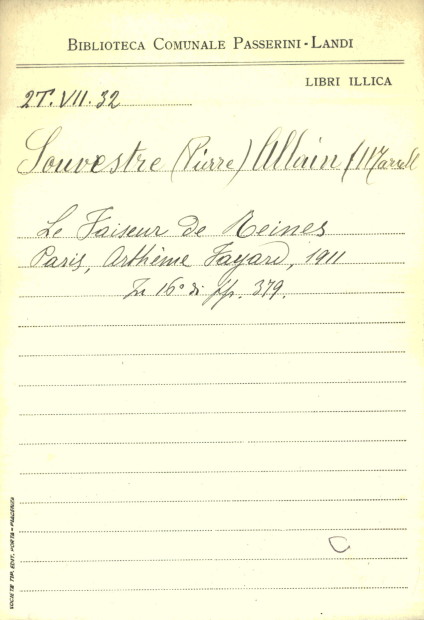 BIBLIOTECA COMUNALE PASSERINI-LANDI
LIBRI ILLICA
2T.VII.32
Souvestre (Pierre) Allain (Marcel
Le Faiseur de Reines
Paris, Arthème Fayard, 1911
In 16° di pp. 379.
C
SOCIETÀ TIP. EDIT. PORTA - PIACENZA